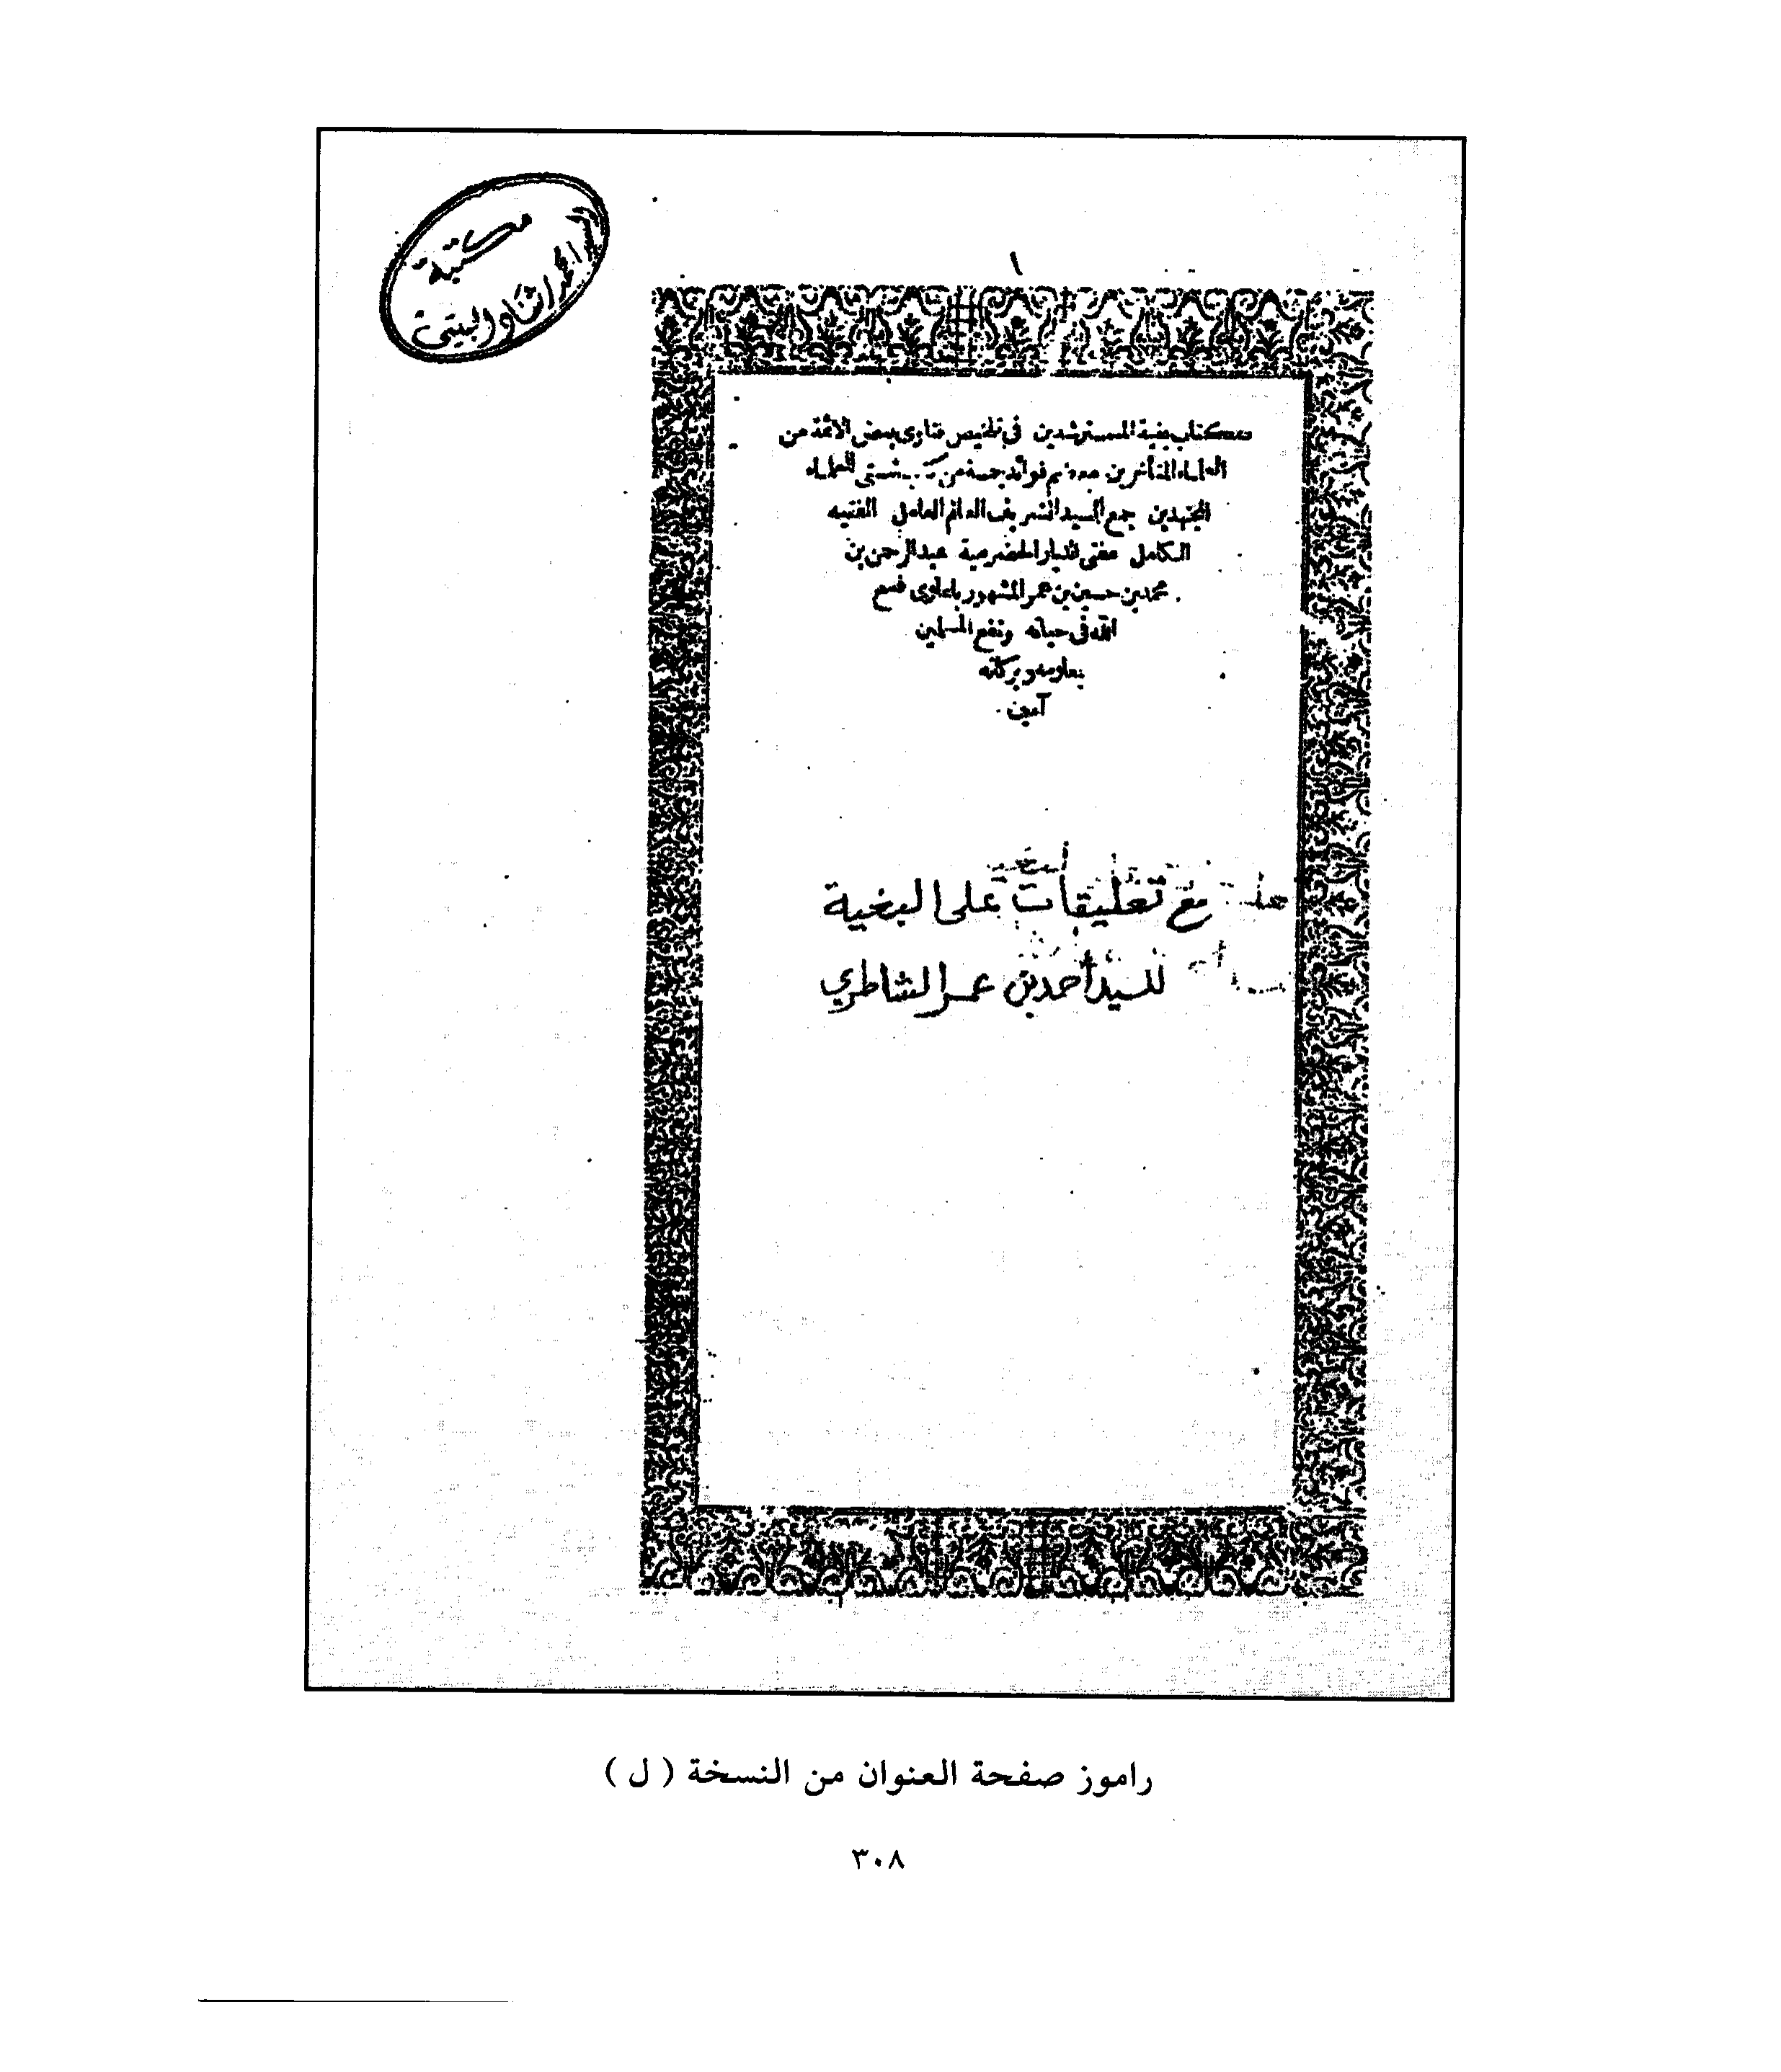 مكتبة
والبيتي
١
كتاب بغية المسترشدين في تلخيص فتاوى بعض الأئمة من
العلماء المتأخرين مع ضم فوائد جمة من كتب شتى للعلماء
المجتهدين جمع السيد الشريف العالم العامل الفقيه
الكامل مفتي الديار الحضرمية عبد الرحمن بن
محمد بن حسين بن عمر المشهور باعلوى فسح
الله في حياته ونفع المسلمين
بعلومه وبركاته
آمين
مع تعليقات على البغية
للسيد أحمد بن عمر الشاطري
راموز صفحة العنوان من النسخة ( ل )
٣٠٨